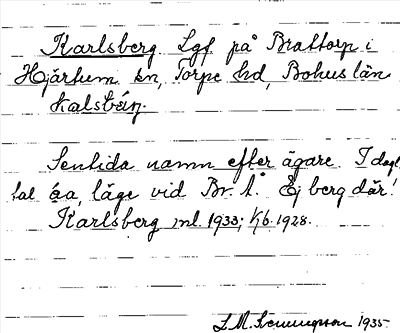 Karlsberg Lgf på Brattorp i
Hjärtum sn, Torpe hd, Bohuslän
Kalsbärj.
Sentida namn efter ägare. I dagl.
tal åa, läge vid Br. Å. Ej berg där!
Karlsberg ml. 1933; Kb. 1928.
1935.